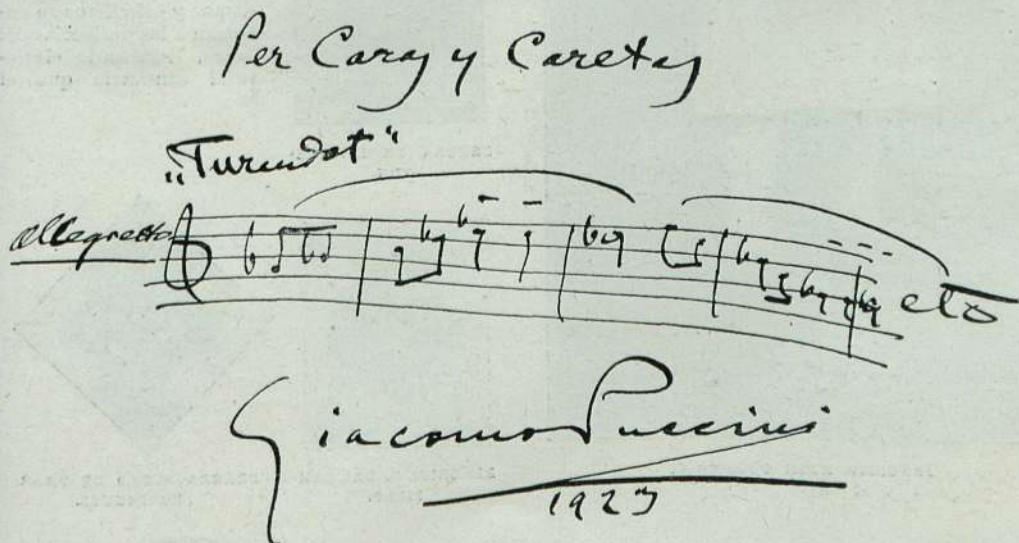 Per Caras y Caretas
„Turandot"
Allegretto
etc
Giacomo Puccini
1923